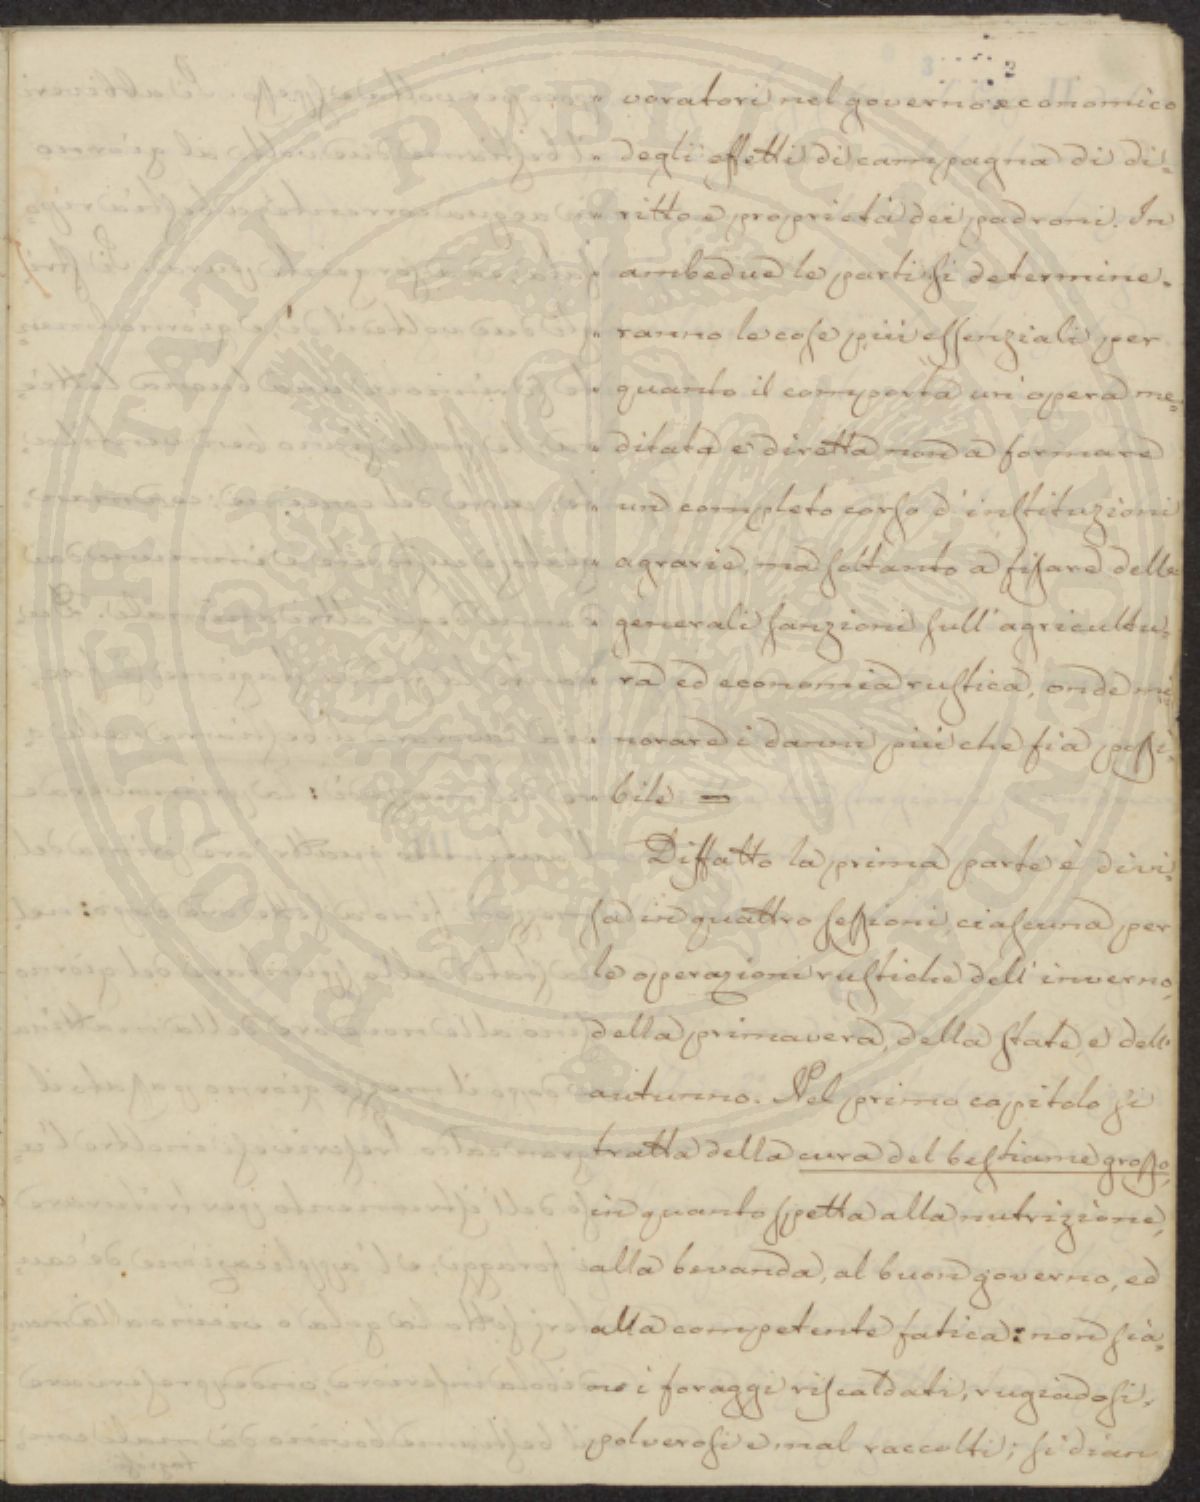 3
" voratori nel governo economico
" degli effetti di campagna di di=
" ritto e proprietà dei padroni. In
" ambedue le parti si determine=
" ranno le cose più essenziali per
" quanto il comporta un'opera me=
" ditata e diretta non a formare
" un completo corso d'instituzioni
" agrarie, ma soltanto a fissare delle
" generali sanzioni sull'agricultu=
" ra ed economia rustica, onde mi=
" norare i danni più che fia possi=
" bile =
Diffatto la prima parte è divi=
sa in quattro sessioni, ciascuna per
le operazioni rustiche dell'inverno,
della primavera, della state, e dell'
autunno. Nel primo capitolo si
tratta della cura del bestiame grosso,
in quanto spetta alla nutrizione,
alla bevanda, al buon governo, ed
alla competente fatica: non sia=
no i foraggi riscaldati, rugiadosi,
polverosi e mal raccolti; si dian
PROSPERITATI PUBLICAE AUGENDAE